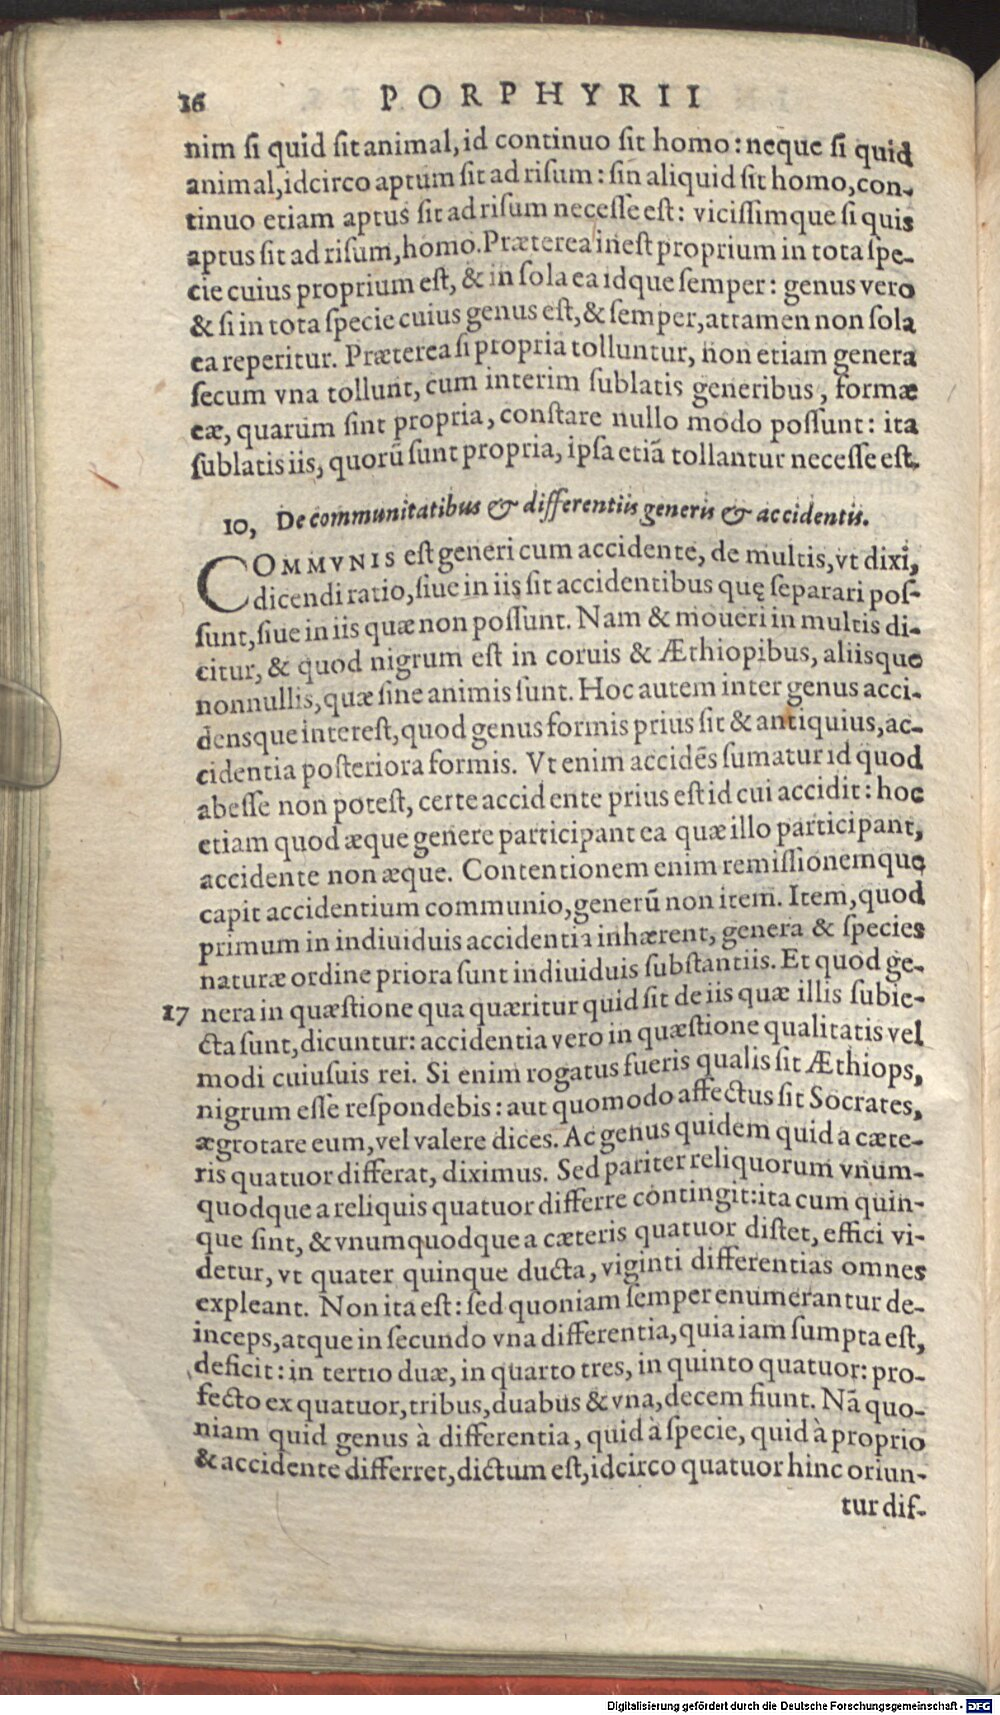 16 PORPHYRII
nim ſi quid ſit animal, id continuo ſit homo: neque ſi quid
animal, idcirco aptum ſit ad riſum: ſin aliquid ſit homo, con-
tinuo etiam aptus ſit ad riſum neceſſe eſt: viciſſimque ſi quis
aptus ſit ad riſum, homo. Præterea ineſt proprium in tota ſpe-
cie cuius proprium eſt, & in ſola ea idque ſemper: genus vero
& ſi in tota ſpecie cuius genus eſt, & ſemper, attamen non ſola
ea reperitur. Præterea ſi propria tolluntur, non etiam genera
ſecum vna tollunt, cum interim ſublatis generibus, formæ
eæ, quarum ſint propria, conſtare nullo modo poſſunt: ita
ſublatis iis, quorũ ſunt propria, ipſa etiã tollantur neceſſe eſt.
10, De communitatibus & differentiis generis & accidentis.
COMMVNIS eſt generi cum accidente, de multis, vt dixi,
dicendi ratio, ſiue in iis ſit accidentibus quę ſeparari poſ-
ſunt, ſiue in iis quæ non poſſunt. Nam & moueri in multis di-
citur, & quod nigrum eſt in coruis & Æthiopibus, aliisque
nonnullis, quæ ſine animis ſunt. Hoc autem inter genus acci-
densque intereſt, quod genus formis prius ſit & antiquius, ac-
cidentia poſteriora formis. Vt enim accidẽs ſumatur id quod
abeſſe non poteſt, certe accidente prius eſt id cui accidit: hoc
etiam quod æque genere participant ea quæ illo participant,
accidente non æque. Contentionem enim remiſſionemque
capit accidentium communio, generũ non item. Item, quod
primum in indiuiduis accidentia inhærent, genera & ſpecies
naturæ ordine priora ſunt indiuiduis ſubſtantiis. Et quod ge-
17 nera in quæſtione qua quæritur quid ſit de iis quæ illis ſubie-
cta ſunt, dicuntur: accidentia vero in quæſtione qualitatis vel
modi cuiuſuis rei. Si enim rogatus fueris qualis ſit Æthiops,
nigrum eſſe reſpondebis: aut quomodo affectus ſit Socrates,
ægrotare eum, vel valere dices. Ac genus quidem quid a cæte-
ris quatuor differat, diximus. Sed pariter reliquorum vnum-
quodque a reliquis quatuor differre contingit: ita cum quin-
que ſint, & vnumquodque a cæteris quatuor diſtet, effici vi-
detur, vt quater quinque ducta, viginti differentias omnes
expleant. Non ita eſt: ſed quoniam ſemper enumerantur de-
inceps, atque in ſecundo vna differentia, quia iam ſumpta eſt,
deficit: in tertio duæ, in quarto tres, in quinto quatuor: pro-
fecto ex quatuor, tribus, duabus & vna, decem fiunt. Nã quo-
niam quid genus à differentia, quid à ſpecie, quid à proprio
& accidente differret, dictum eſt, idcirco quatuor hinc oriun-
tur diſ-
Digitalisierung gefördert durch die Deutsche Forschungsgemeinschaft - DFG